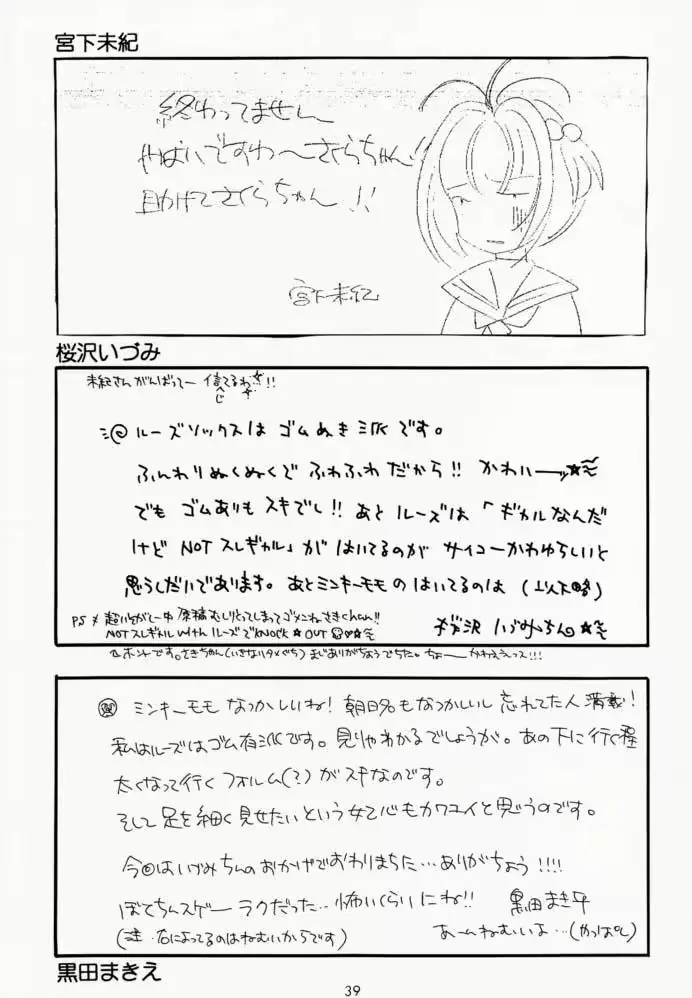 宮下未紀
終わってません
やばいですわ〜さくらちゃん!!
助けてさくらちゃん!!
宮下未紀
桜沢いづみ
未紀さんがんばってー 信じてるわ!!
ルーズソックスは ゴムぬき派です。
ふんわりぬくぬくで ふわふわだから!! かわいーッ☆
でも ゴムありも スキでし!! あと ルーズは 「ギャルなんだ
けど NOT スレギャル」が はいてるのが サイコーかわゆらしいと
思うしだいであります。あとミンキーモモ のはいてるのは (以下略)
PS
原稿むしりとってしまってゴメンねさきchan!!
NOTスレギャル with ルーズでKNOCK☆OUT
桜沢 いづみちん
ホントです。さきちゃん(いきなりタメぐち) まじありがちょうでちた。ちょー かわええっス!!!
ミンキーモモ なつかしいね! 朝日名もなつかしいし 忘れてた人 満載!
私はルーズはゴム有派です。見りゃわかるでしょうが。あの下に行く程
太くなって行く フォルム(?)がスキなのです。
そして足を細く見せたいという女心もカワユイと思うのです。
今回はいづみちんのおかげでおわりまちた…ありがちょう!!!!
ぼてちんスゲー ラクだった…怖いくらいにね!!
黒田まき
(注・右によってるのはねむいからです)
あーームねむいよ…(やっぱ
黒田まきえ
39